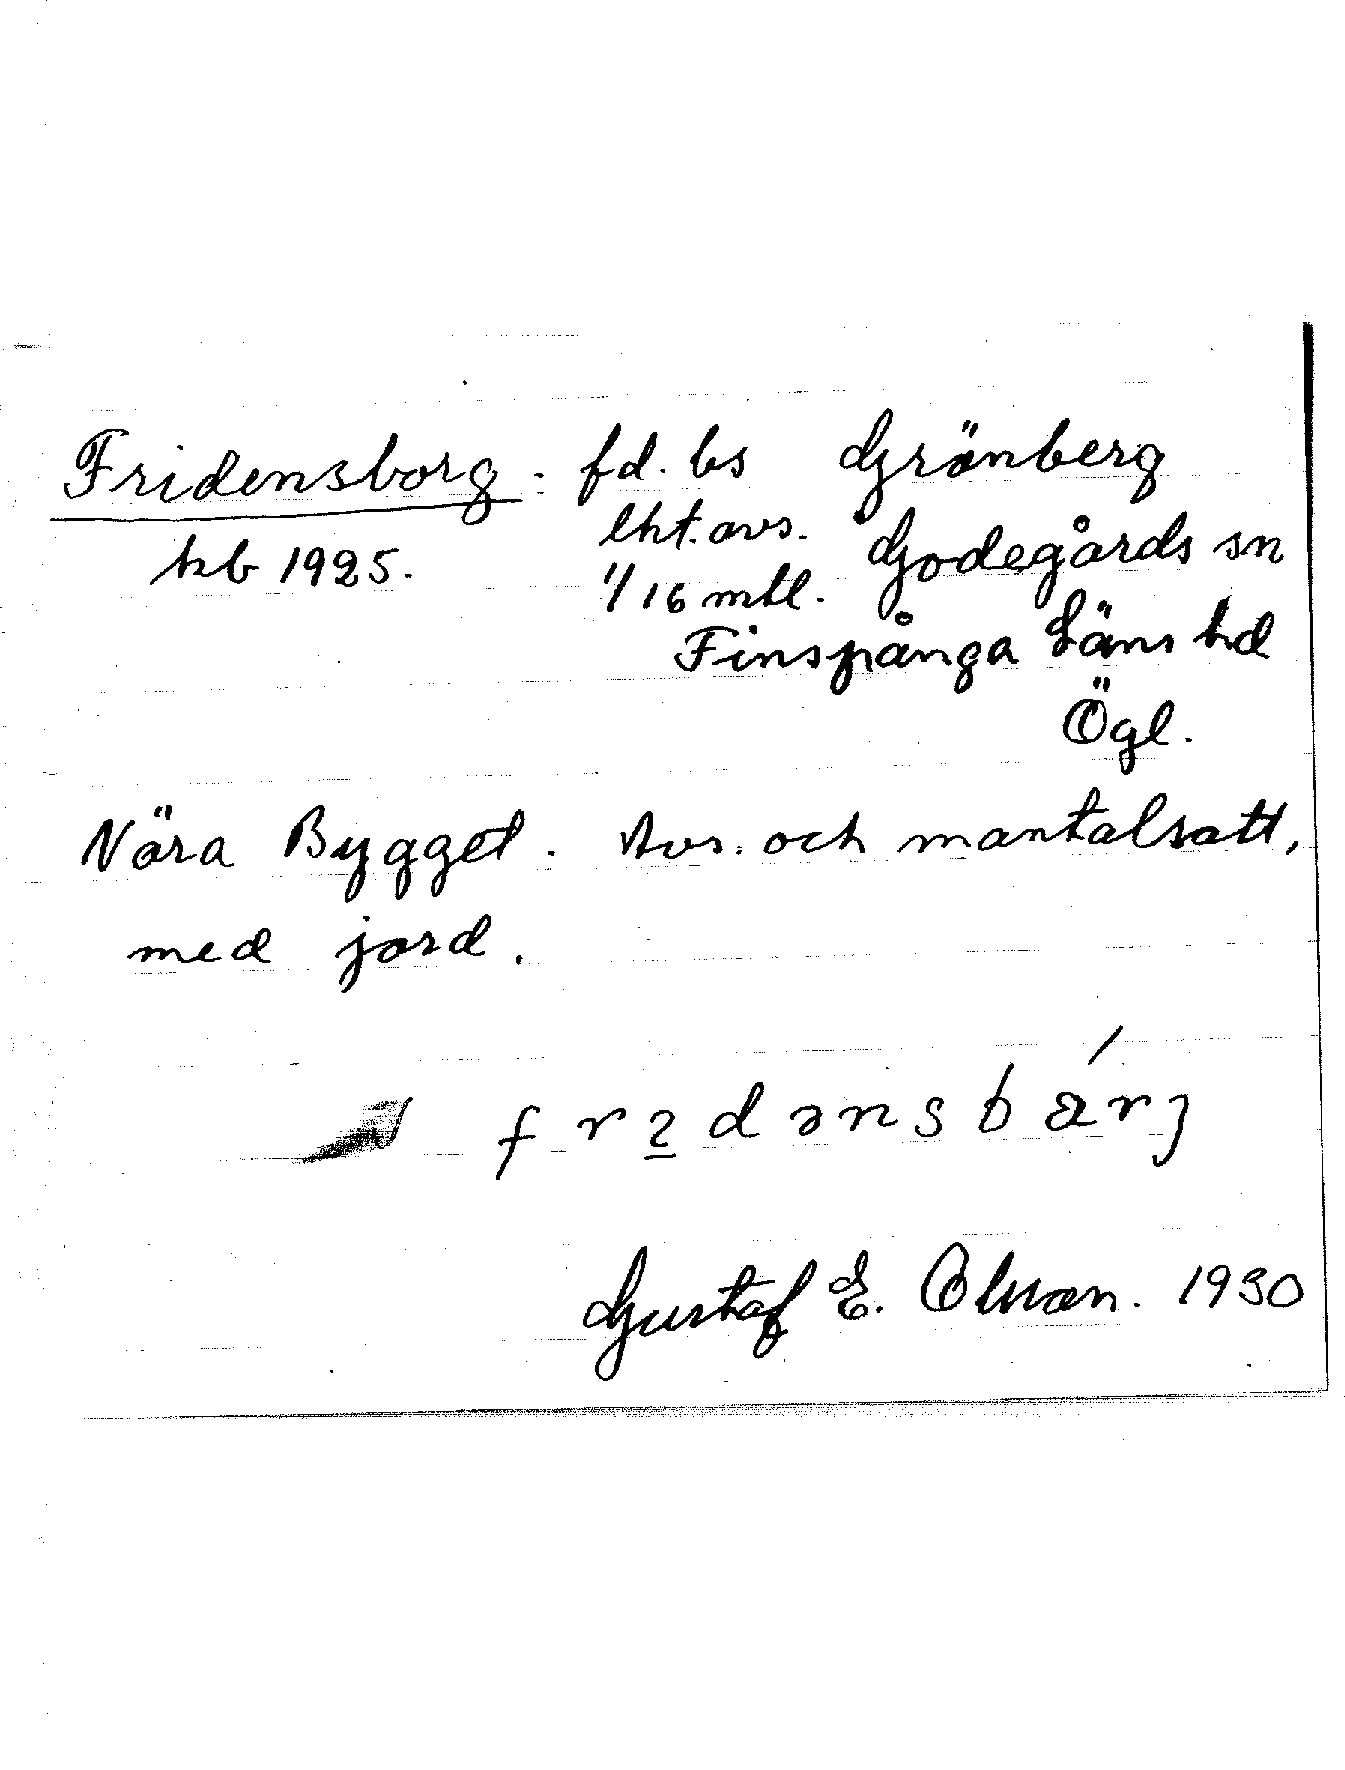 Fridensborg. fd. bs Grönberg
hb 1925. lht. avs. Godegårds sn
1/16 mtl.
Finspånga Läns hd
Ögl.
Nära Bygget. Avs. och mantalsatt,
med jord.
frədənsbárj
Gustaf E. Olsson. 1930